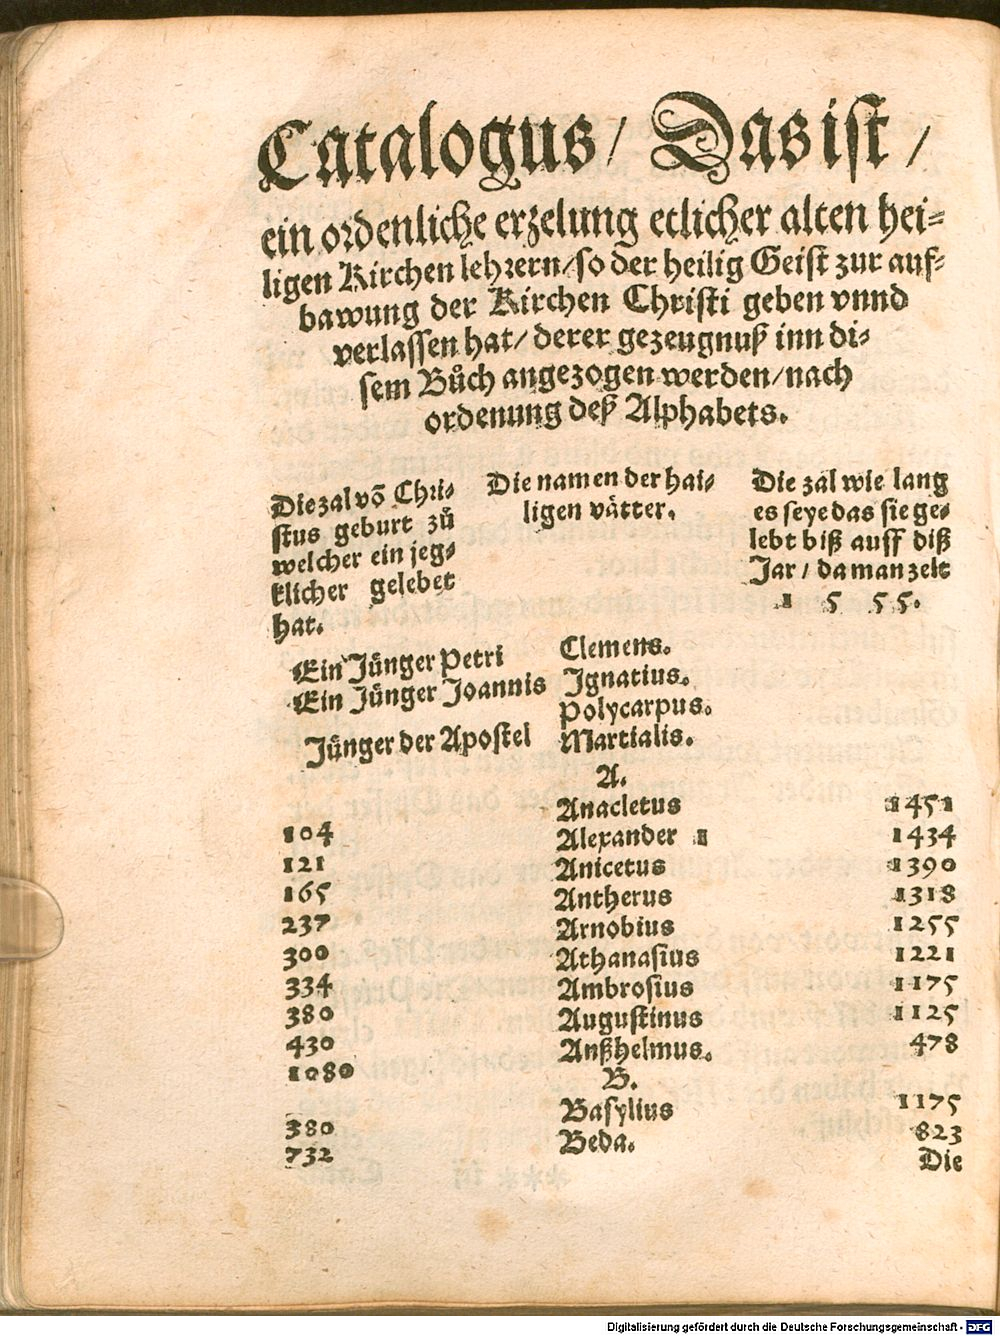 Catalogus/ Das ist/
ein ordenliche erzelung etlicher alten hei⸗
ligen Kirchen lehrern/so der heilig Geist zur auf⸗
bawung der Kirchen Christi geben vnnd
verlassen hat/ derer gezeugnuß inn di⸗
sem Bůch angezogen werden/nach
ordenung deß Alphabets.
Die zal võ Chri⸗
stus geburt zů
welcher ein jeg⸗
klicher gelebet
hat.
Die namen der hai⸗
ligen vätter.
Die zal wie lang
es seye das sie ge⸗
lebt biß auff diß
Jar/ da man zelt
1 5 5 5.
Ein Jünger Petri Clemens.
Ein Jünger Joannis Ignatius.
Polycarpus.
Jünger der Apostel Martialis.
A.
Anacletus 1451
104 Alexander 1 1434
121 Anicetus 1390
165 Antherus 1318
237 Arnobius 1255
300 Athanasius 1221
334 Ambrosius 1175
380 Augustinus 1125
430 Anßhelmus. 478
1080 B.
Basylius 1175
380 Beda. 823
732 Die
Digitalisierung gefördert durch die Deutsche Forschungsgemeinschaft - DFG